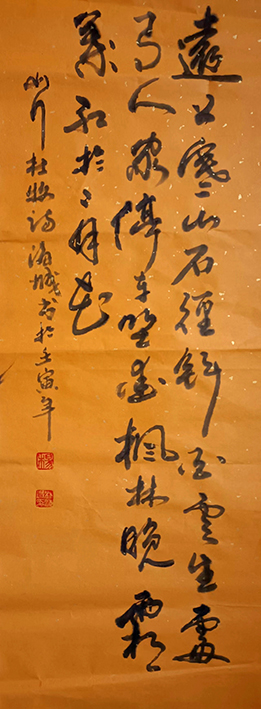 遠上寒山石徑斜白雲生處
有人家停車坐愛楓林晚霜
葉紅於二月花
山行杜牧诗书於壬寅年